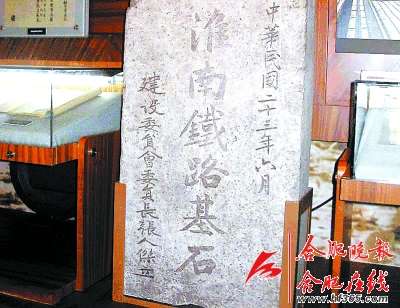 中華民國二十三年六月
淮南鐵路基石
建設委員會委員長張人傑立
合肥晚報
合肥在线
www.hf365.com